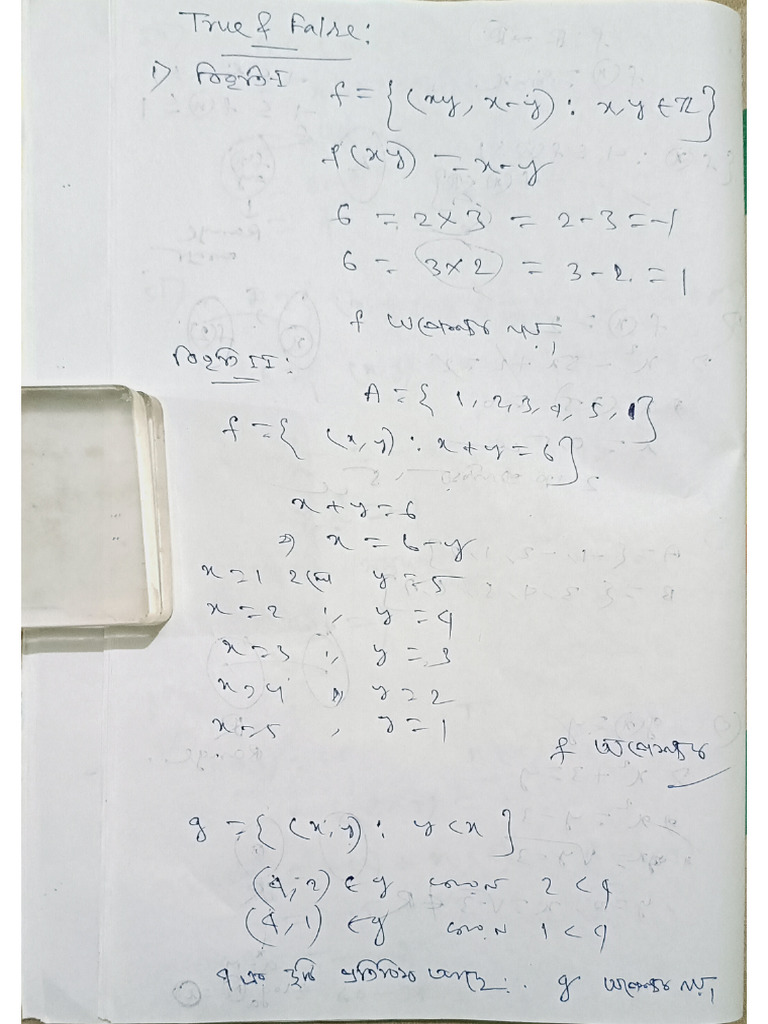 True & False:
1) বিবৃতি-I
f = {(xy, x-y) : x,y ∈ ℤ}
f(xy) = x-y
6 = 2×3 = 2-3 = -1
6 = 3×2 = 3-2 = 1
f অপেক্ষক নয়।
বিবৃতি II:
A = { 1, 2, 3, 4, 5, }
f = { (x, y) : x + y = 6 }.
x + y = 6
⇒ x = 6-y
x = 1 হলে y = 5
x = 2 ,, y = 4
x = 3 ,, y = 3
x = 4 ,, y = 2
x = 5 , y = 1
f অপেক্ষক
g = { (x, y) : y < x }
(4, 2) ∈ g কারন 2 < 4
(4, 1) ∈ g কারন 1 < 4
4 এর দুটি প্রতিবিম্ব আছে ∴ g অপেক্ষক নয়।